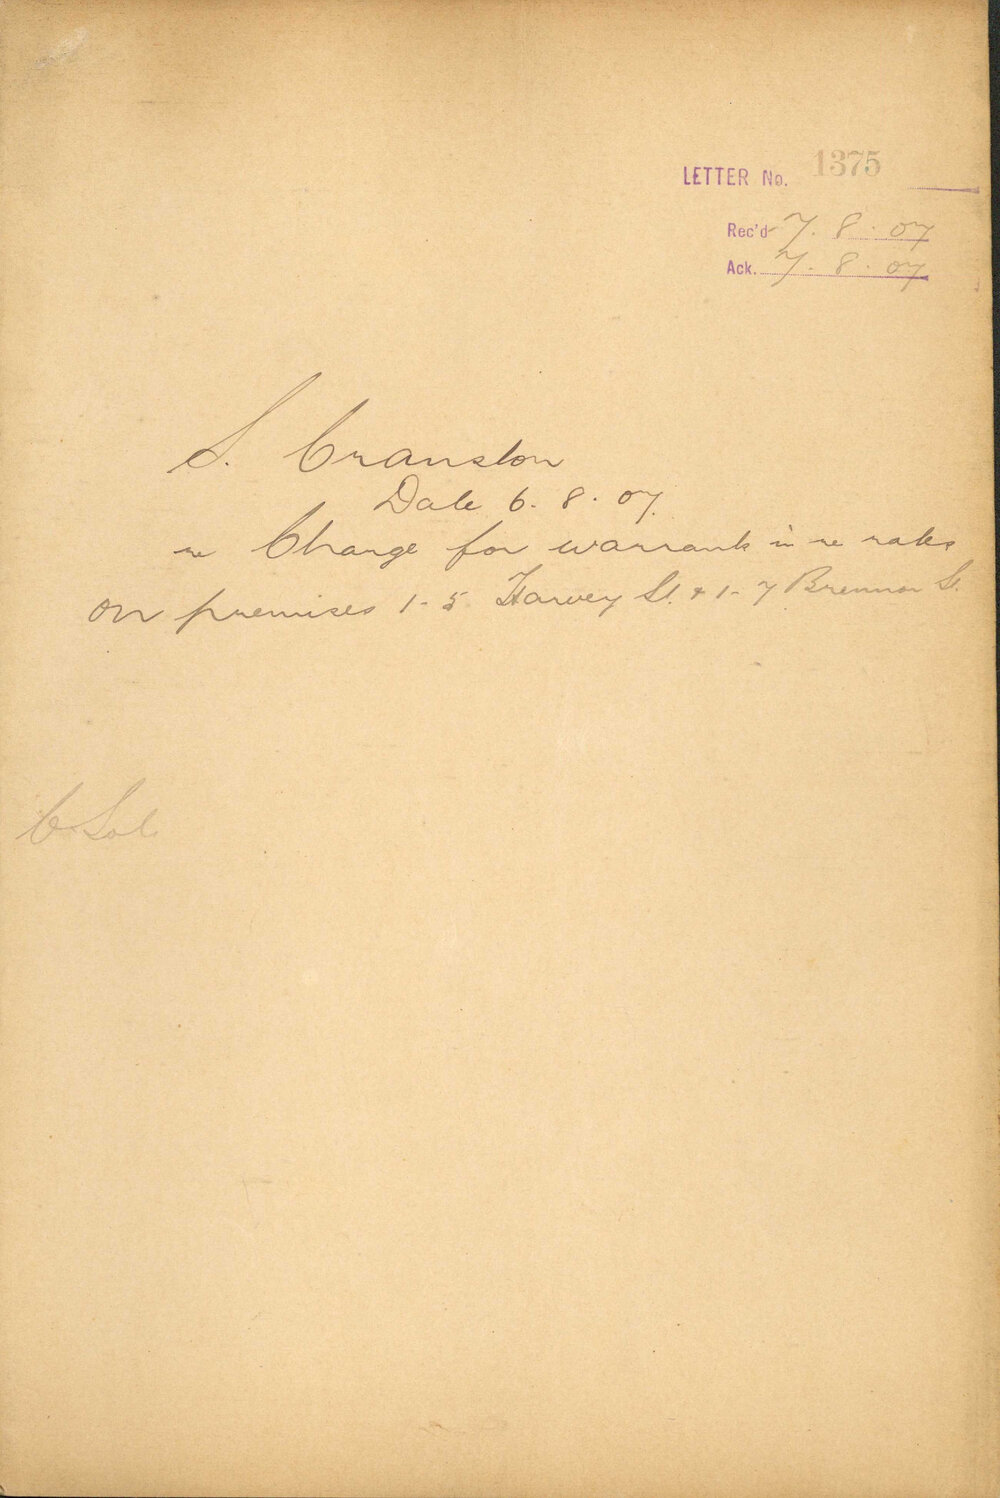 LETTER No. 1375
Rec'd 7.8.07
Ack. 7.8.07
S. Cranston
Date 6.8.07.
re Charge for warrants in re rates
on premises 1-5 Harvey St. & 1-7 Brennan St.
C. Sol.